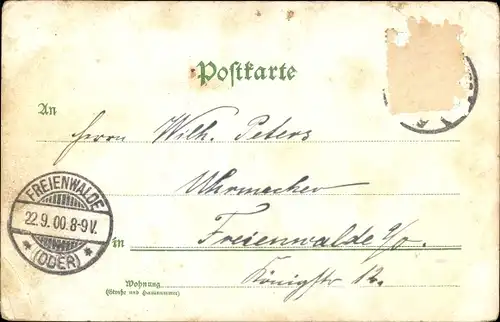 Postkarte
An
Herrn Wilh. Peters
Uhrmacher
in Freienwalde a/O.
Königstr 12.
Wohnung
(Straße und Hausnummer)
FREIENWALDE
22.9.00.8-9V.
* (ODER) *